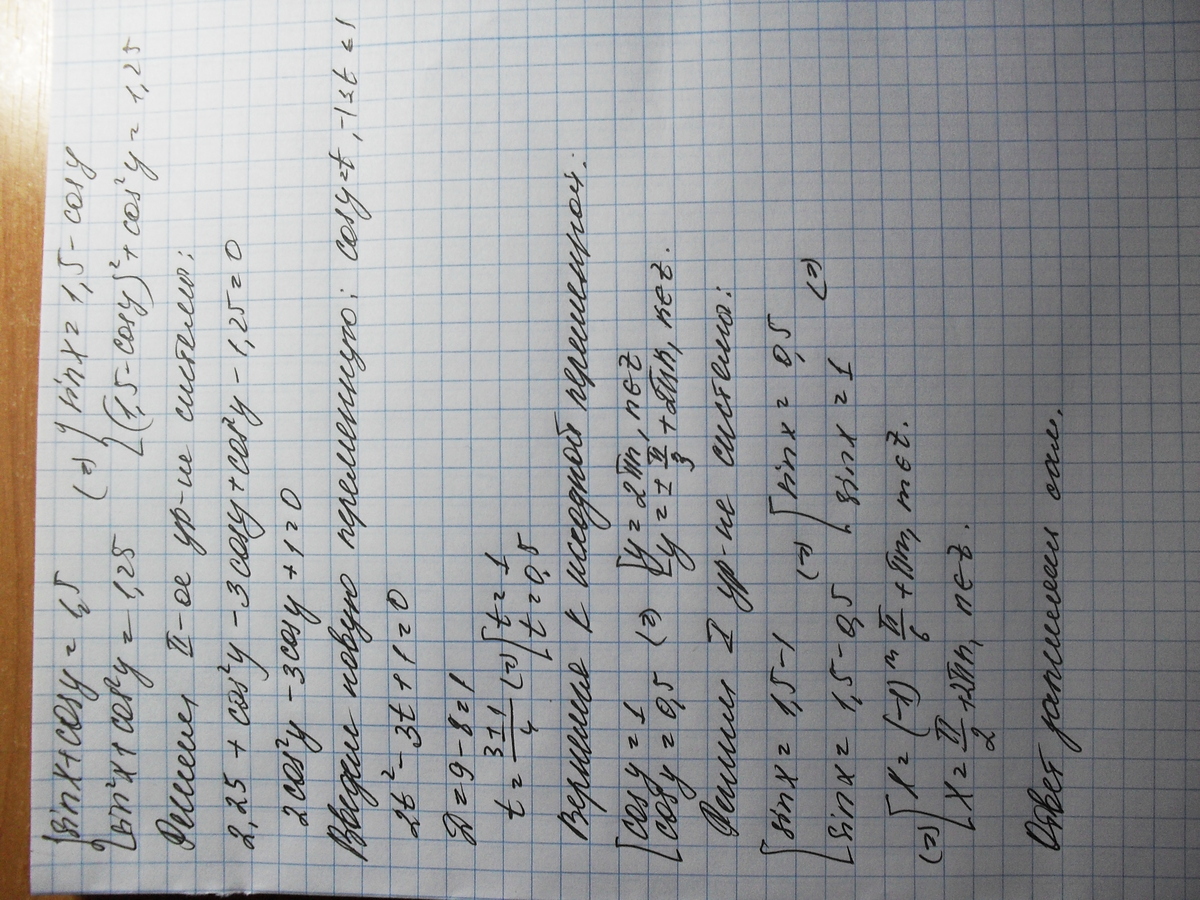 { sinx + cosy = 1,5 (=) { sinx = 1,5 - cosy
{ sin²x + cos²y = 1,25 { (1,5 - cosy)² + cos²y = 1,25
Решаем II-ое ур-ие системы:
2,25 + cos²y - 3cosy + cos²y - 1,25 = 0
2cos²y - 3cosy + 1 = 0
Введем новую переменную: cosy = t, -1 ≤ t ≤ 1
2t² - 3t + 1 = 0
D = 9 - 8 = 1
t = (3 ± 1)/4 (=) [ t = 1
[ t = 0,5
Вернемся к исходной переменной:
[ cosy = 1 (=) [ y = 2πn, n∈Z
[ cosy = 0,5 [ y = ± π/3 + 2πn, n∈Z.
Решим I ур-ие системы:
[ sinx = 1,5 - 1 (=) [ sinx = 0,5 (=)
[ sinx = 1,5 - 0,5 [ sinx = 1
(=) [ x = (-1)ᵐ π/6 + πm, m∈Z.
[ x = π/2 + 2πn, n∈Z.
Ответ запишеш сам.